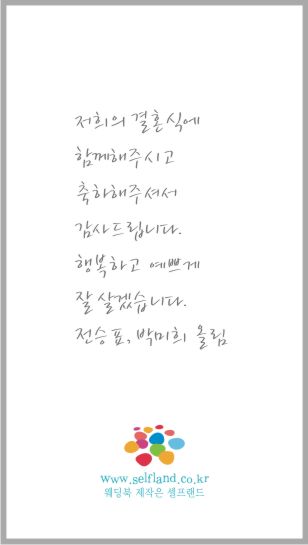 저희의 결혼식에
함께해주시고
축하해주셔서
감사드립니다.
행복하고 예쁘게
잘 살겠습니다.
전승표, 박미희 올림
www.selfland.co.kr
웨딩북 제작은 셀프랜드